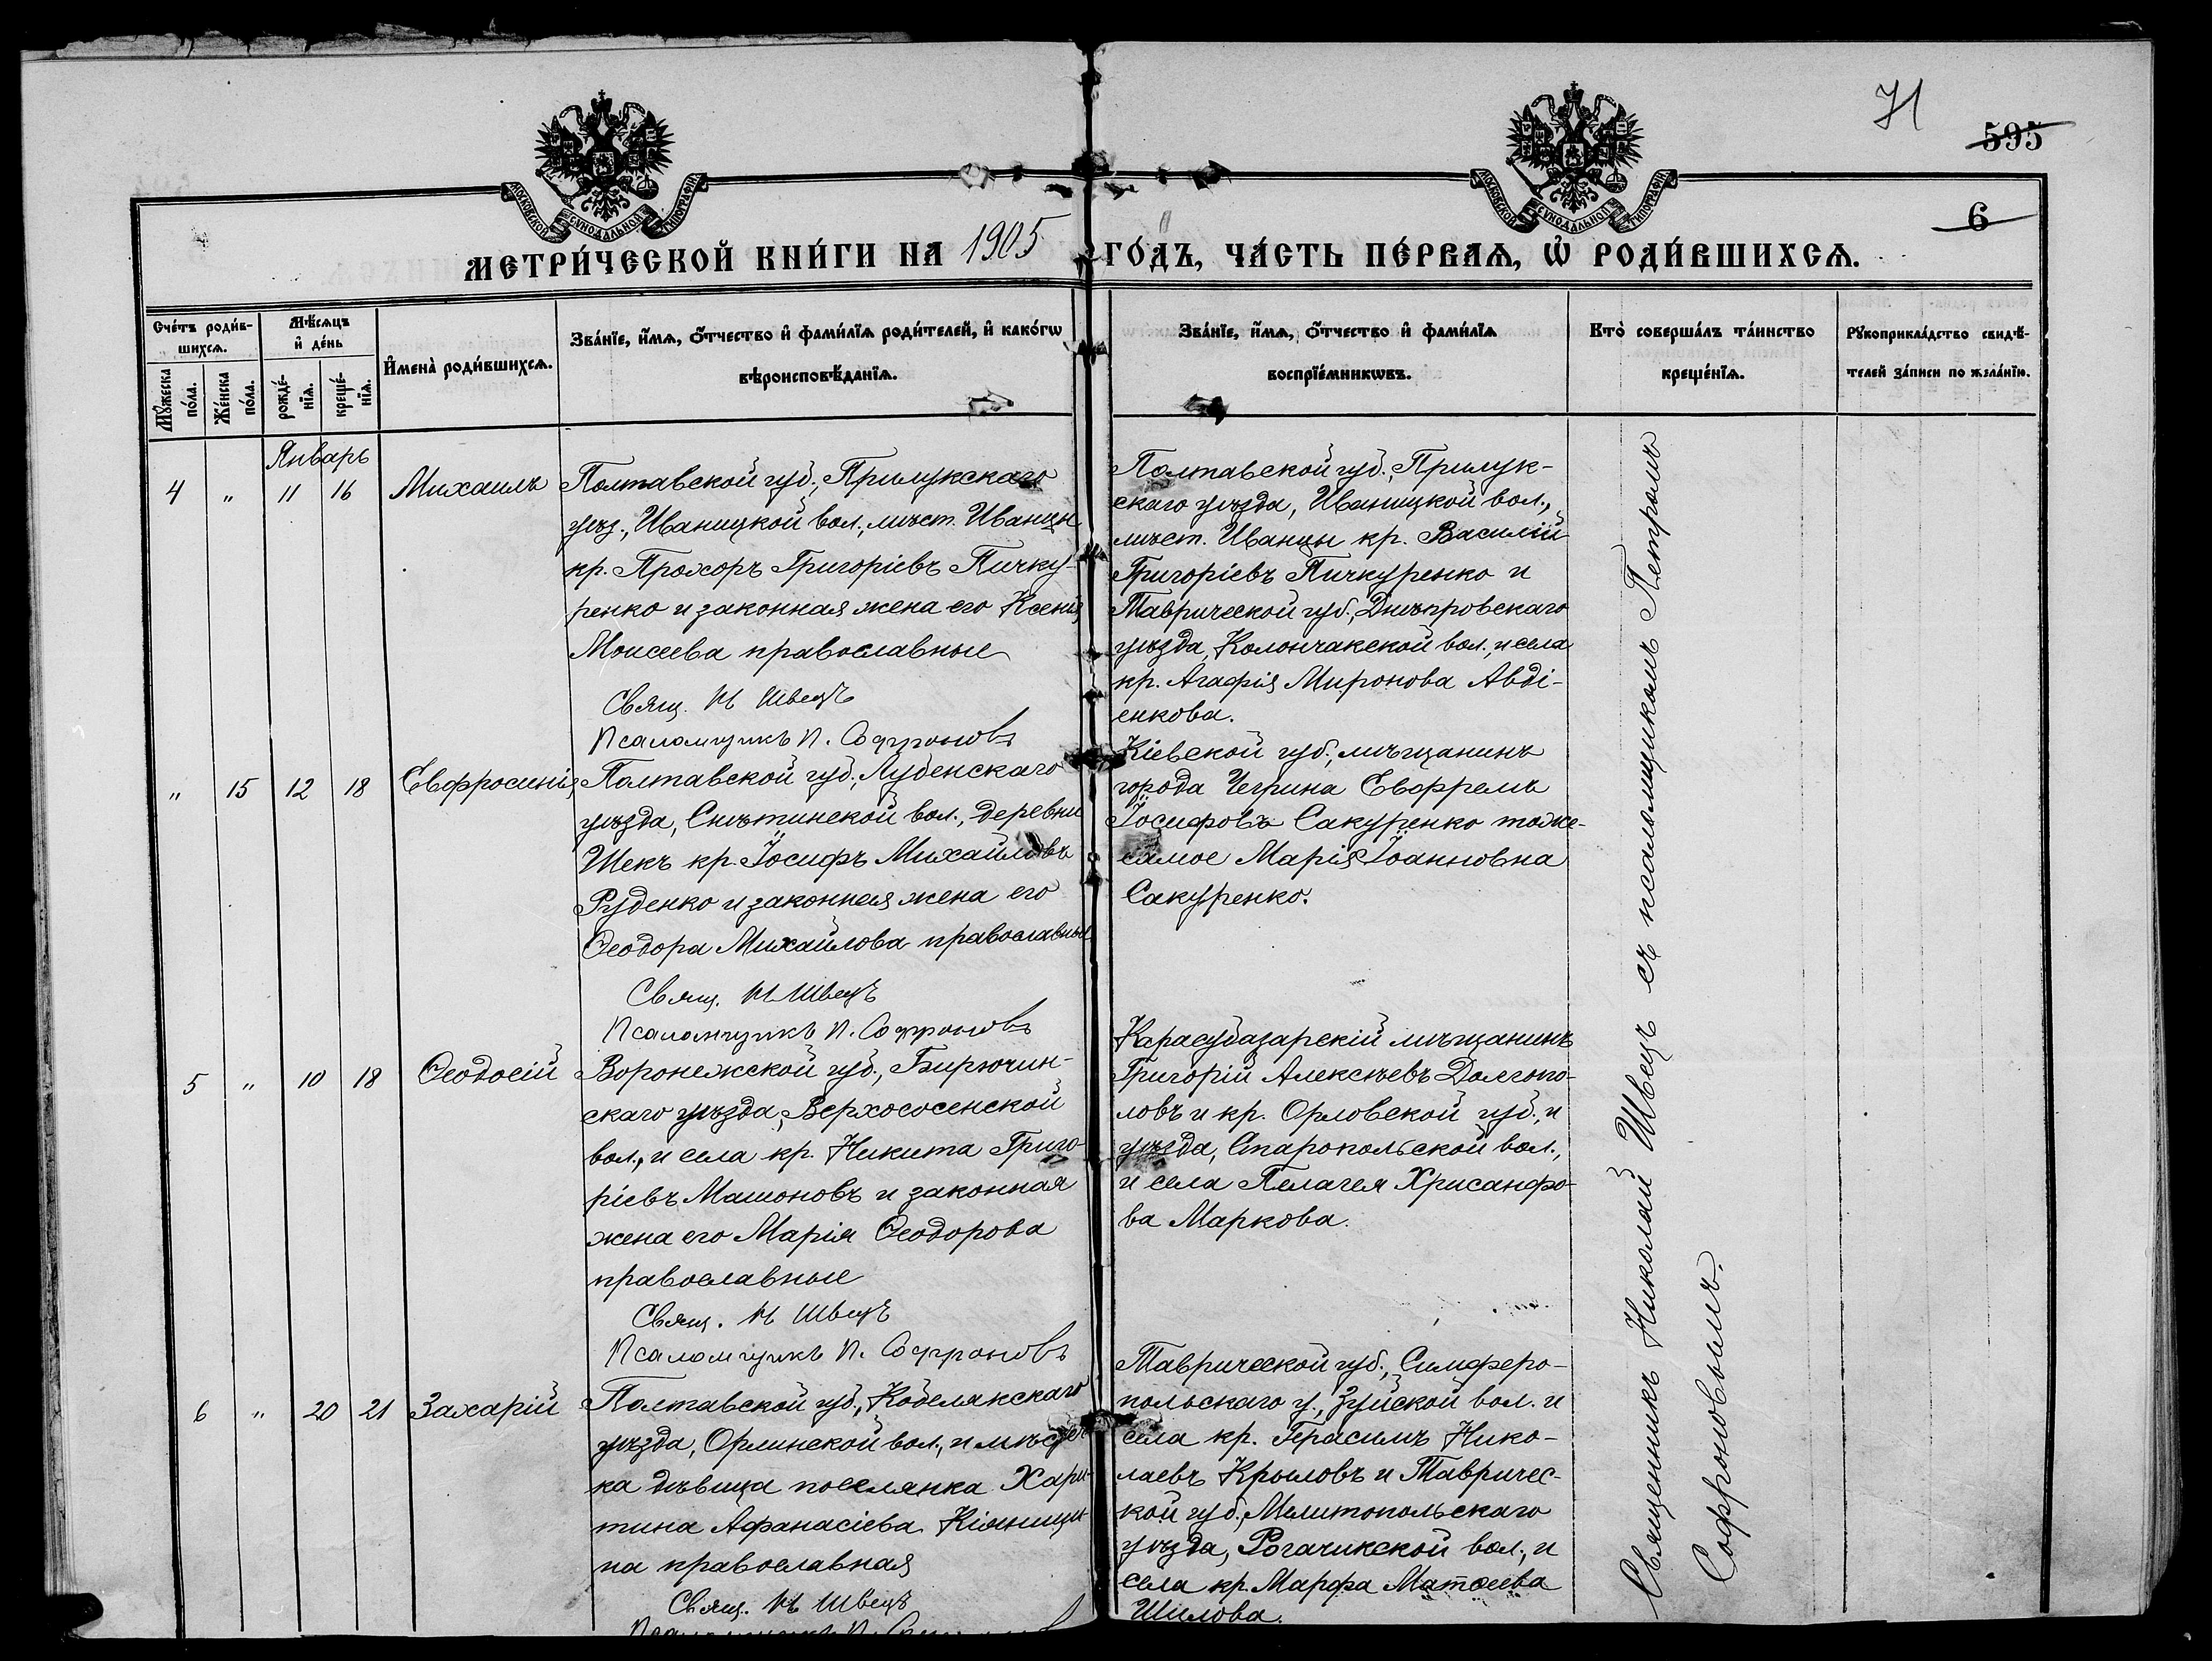 71
595
6
МОСКОВСКОЙ СѴНОДАЛЬНОЙ ТИПОГРАФІИ
МОСКОВСКОЙ СѴНОДАЛЬНОЙ ТИПОГРАФІИ
МЕТРИ́ЧЕСКОЙ КНИ́ГИ НА 1905 ГО́ДЪ, ЧА́СТЬ ПЕ́РВАѦ, Ѡ РОДИ́ВШИХСѦ.
Сче́тъ роди́в-
шихсѧ.
Мꙋ́жеска
по́ла.
Же́нска
по́ла.
Мѣ́сѧцъ
и҆ де́нь
рожде́-
нїѧ.
креще́-
нїѧ.
И҆мена̀ роди́вшихсѧ.
Зва́нїе, и҆́мѧ, ѻ҆́тчество и҆ фами́лїѧ роди́телей, и҆ како́гѡ
вѣроисповѣ́данїѧ.
Зва́нїе, и҆́мѧ, ѻ҆́тчество и҆ фами́лїѧ
воспрїе́мникѡвъ.
Кто̀ соверша́лъ та́инство
креще́нїѧ.
Рꙋкоприкла́дство свидѣ́-
телей за́писи по жела́нїю.
Январь
4 " 11 16 Михаилъ
Полтавской губ., Прилукскаго
уѣз., Иваницкой вол., мѣст. Иваницы
кр. Прохоръ Григоріевъ Пичку-
ренко и законная жена его Ксенія
Моисеева православные
Свящ. Н Швецъ
Псаломщикъ П. Софроновъ
Полтавской губ., Прилук-
скаго уѣзда, Иваницкой вол.,
мѣст. Иваницы кр. Василій
Григоріевъ Пичкуренко и
Таврической губ., Днѣпровскаго
уѣзда, Колончакской вол., и села
кр. Агафія Миронова Авді-
енкова.
" 15 12 18 Евфросинія
Полтавской губ., Лубенскаго
уѣзда, Снѣтинской вол., деревни
Шекъ кр. Іосифъ Михайловъ
Руденко и законная жена его
Ѳеодора Михайлова православные
Свящ. Н Швецъ
Псаломщикъ П. Софроновъ
Кіевской губ., мѣщанинъ
города Чегрина Евфремъ
Іосифовъ Сакуренко тоже-
самое Марія Іоанновна
Сакуренко.
5 " 10 18 Ѳеодосій
Воронежской губ., Бирючин-
скаго уѣзда, Верхососенской
вол., и села кр. Никита Григо-
ріевъ Машоновъ и законная
жена его Марія Ѳеодорова
православные
Свящ. Н Швецъ
Псаломщикъ П. Софроновъ
Карасубазарскій мѣщанинъ
Григорій Алексѣевъ Долгопо-
ловъ и кр. Орловской губ., и
уѣзда, Старопольской вол.,
и села Пелагея Хрисанфо-
ва Маркова.
6 " 20 21 Захарій
Полтавской губ., Кобелякскаго
уѣзда, Орлинской вол., и мѣстеч
ка дѣвица поселянка Хари-
тина Афанасіева Кіяници-
на православная
Свящ. Н Швецъ
Таврической губ., Симферо-
польскаго у., Зуйской вол. и
села кр. Герасимъ Нико-
лаевъ Крыловъ и Тавричес-
кой губ., Мелитопольскаго
уѣзда, Рогачикской вол., и
села кр. Марфа Матѳеева
Шилова.
Священникъ Николай Швецъ съ псаломщикомъ Петромъ
Софроновымъ.